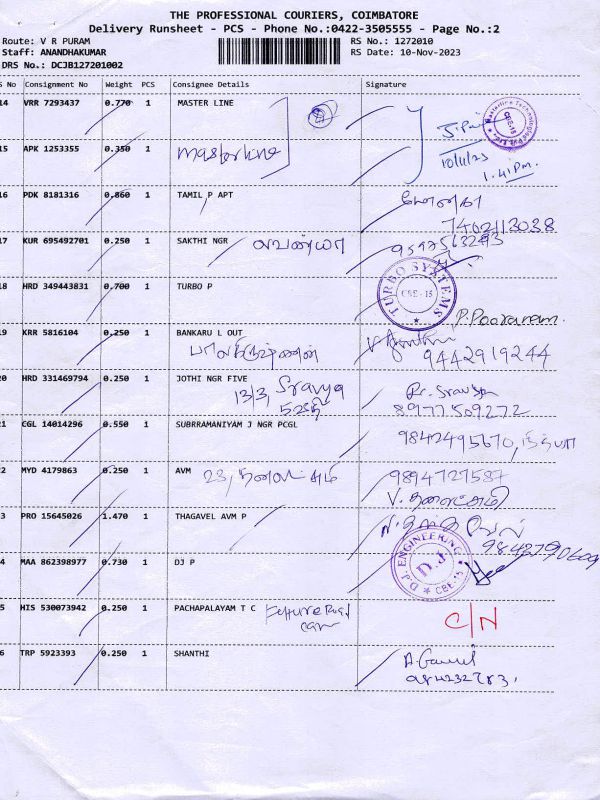 THE PROFESSIONAL COURIERS, COIMBATORE
Delivery Runsheet - PCS - Phone No.:0422-3505555 - Page No.:2
Route: V R PURAM
RS No.: 1272010
Staff: ANANDHAKUMAR
RS Date: 10-Nov-2023
DRS No.: DCJB127201002
S No Consignment No Weight PCS Consignee Details Signature
14 VRR 7293437 0.770 1 MASTER LINE
10/11/23
1.41 PM.
15 APK 1253355 0.350 1 Masterline
16 PDK 8181316 0.860 1 TAMIL P APT
7402113038
17 KUR 695492701 0.250 1 SAKTHI NGR லாவண்யா
18 HRD 349443831 0.700 1 TURBO P
TURBO SYSTEMS
CBE-15
P. Pooranam.
19 KRR 5816104 0.250 1 BANKARU L OUT
9442919244
20 HRD 331469794 0.250 1 JOTHI NGR FIVE
13/3, Sravya
8977509272
21 CGL 14014296 0.550 1 SUBRRAMANIYAM J NGR PCGL
9842495670, நித்யா
22 MYD 4179863 0.250 1 AVM
9894727587
23 PRO 15645026 1.470 1 THAGAVEL AVM P
24 MAA 862398977 0.730 1 DJ P
D.J. ENGINEERING
D.J.
CBE-15
25 HIS 530073942 0.250 1 PACHAPALAYAM T C
C/N
26 TRP 5923393 0.250 1 SHANTHI